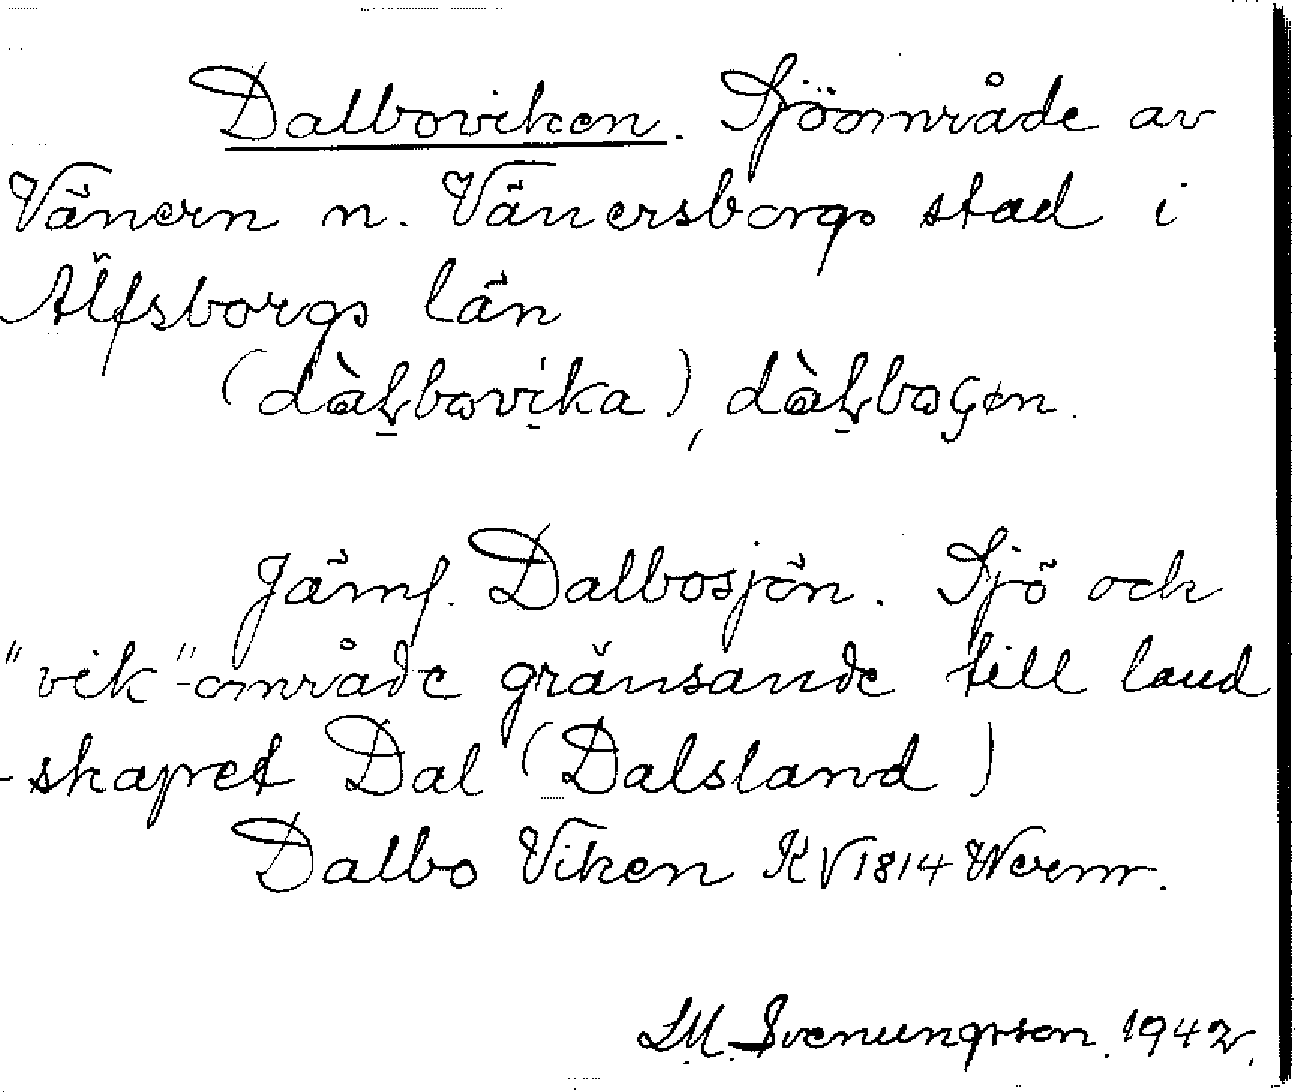 Dalboviken. Sjöområde av
Vänern n. Vänersborgs stad i
Älfsborgs län
(dàḷbovika), dàḷboɕøn.
Jämf. Dalbosjön. Sjö och
"vik"-område gränsande till land
-skapet Dal (Dalsland)
Dalbo Viken KV 1814 Werm.
LM. Svenungsson. 1942.